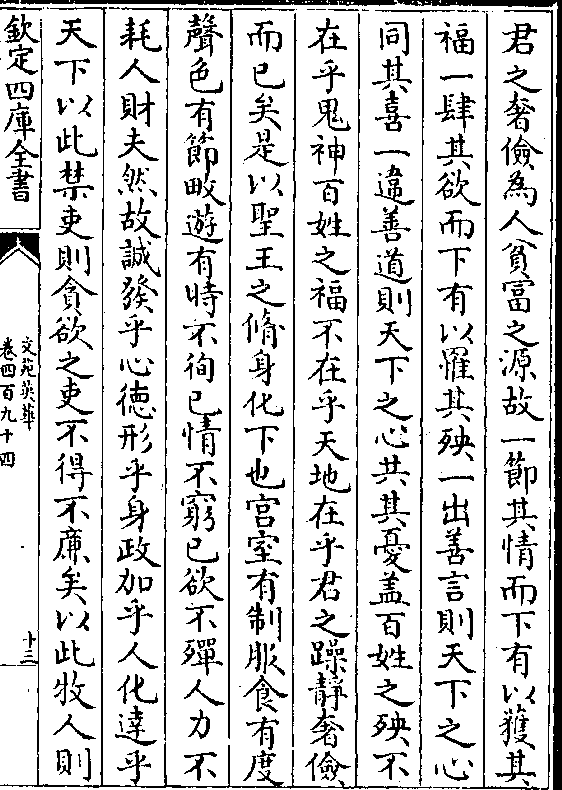 君之奢儉為人貧富之源故一節其情而下有以獲其
福一肆其欲而下有以罹其殃一出善言則天下之心
同其喜一違善道則天下之心共其憂盖百姓之殃不
在乎鬼神百姓之福不在乎天地在乎君之躁靜奢儉
而已矣是以聖王之脩身化下也宫室有制服食有度
聲色有節畋遊有時不徇已情不窮已欲不殫人力不
耗人財夫然故誠發乎心德形乎身政加乎人化達乎
天下以此禁吏則貪欲之吏不得不亷矣以此牧人則
欽定四庫全書
文苑英華
卷四百九十四
十三